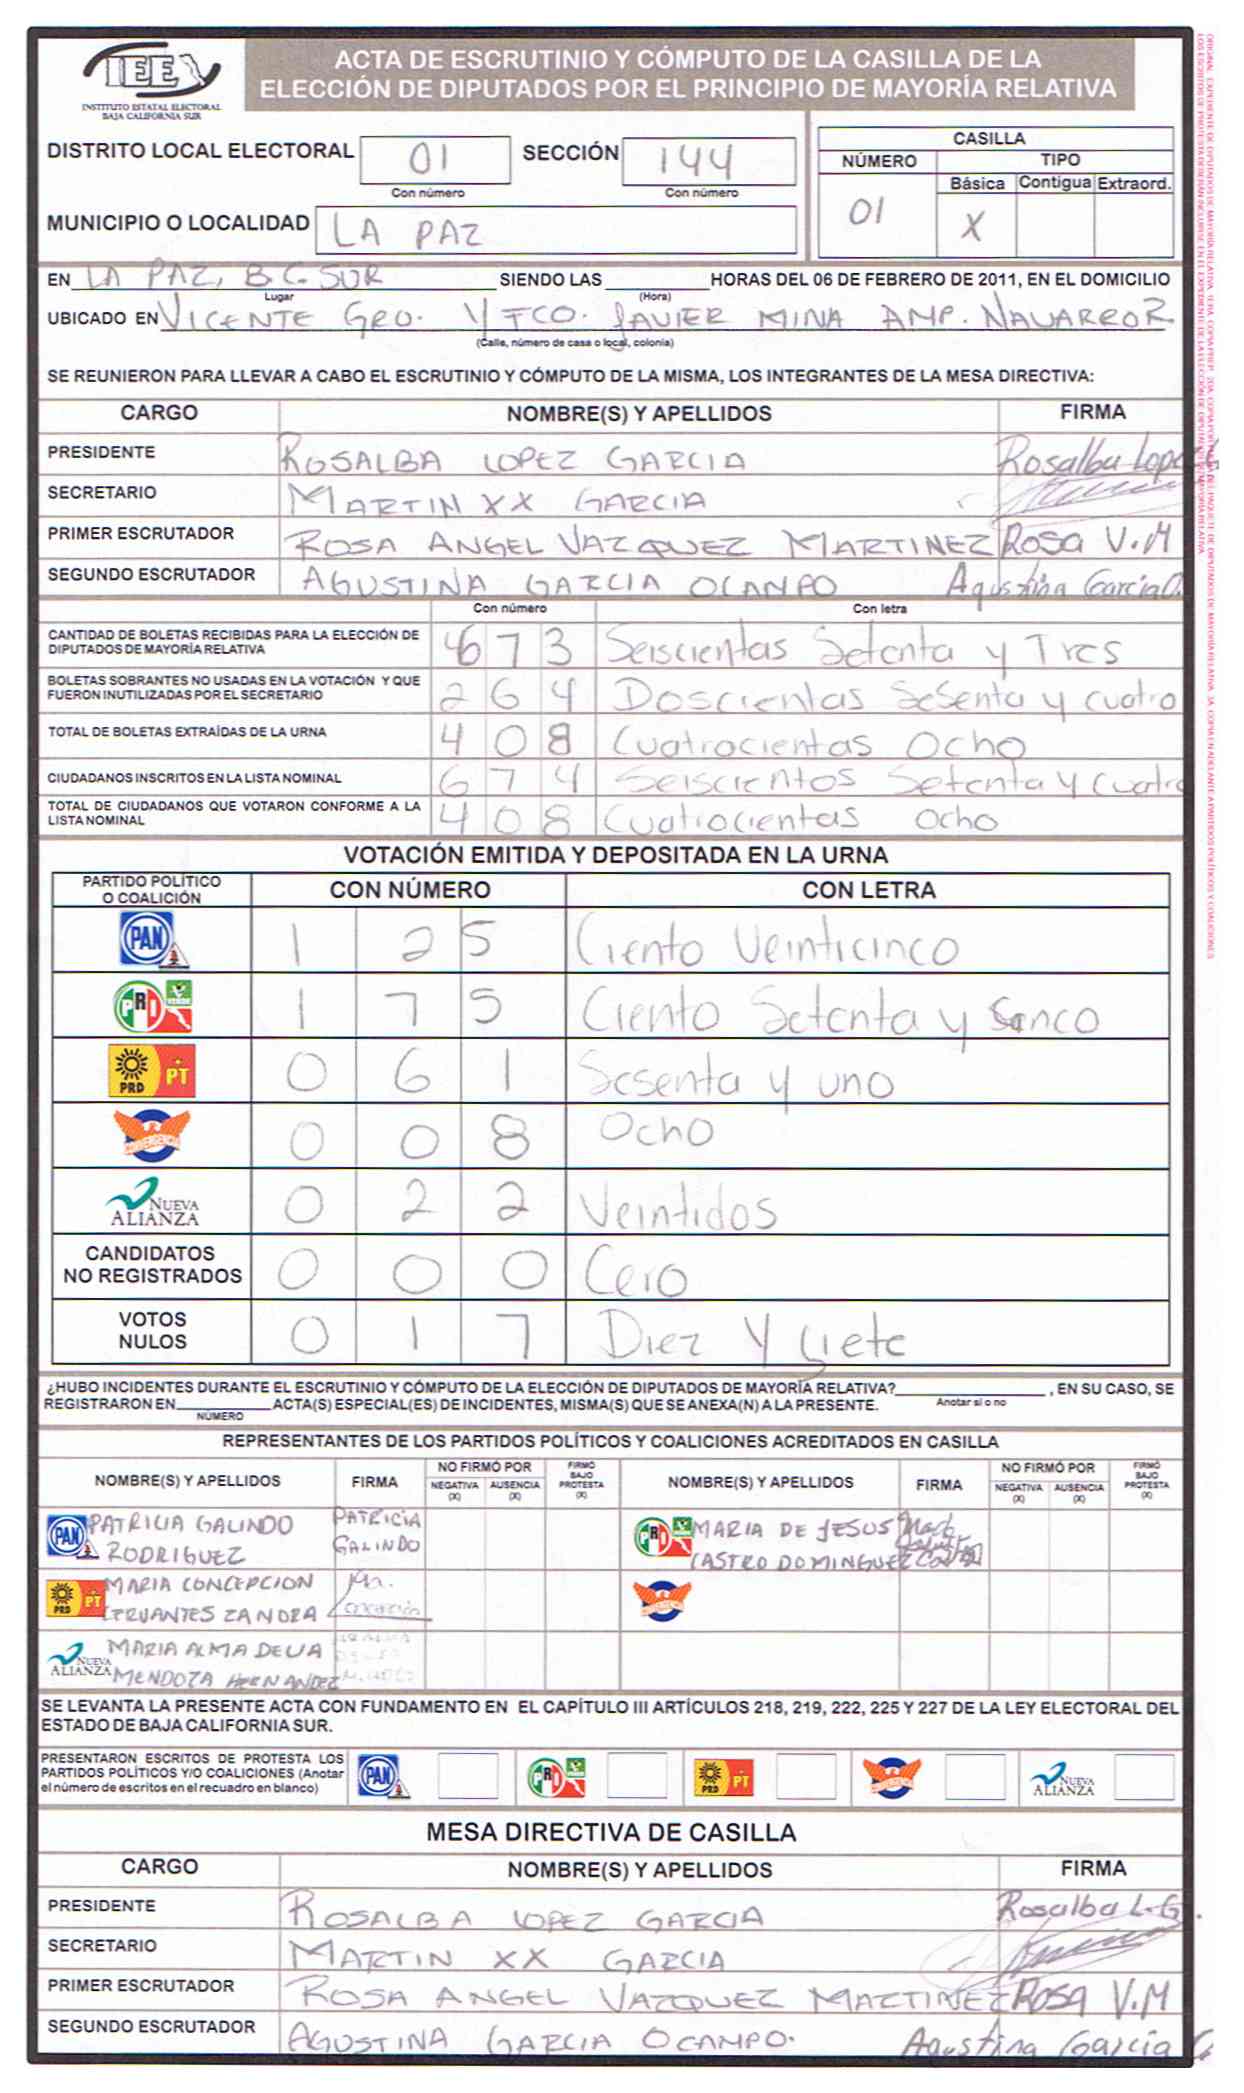 IEE
INSTITUTO ESTATAL ELECTORAL
BAJA CALIFORNIA SUR
ACTA DE ESCRUTINIO Y CÓMPUTO DE LA CASILLA DE LA
ELECCIÓN DE DIPUTADOS POR EL PRINCIPIO DE MAYORÍA RELATIVA
DISTRITO LOCAL ELECTORAL 01 SECCIÓN 144
Con número Con número
MUNICIPIO O LOCALIDAD LA PAZ
CASILLA
NÚMERO TIPO
Básica Contigua Extraord.
01 X
EN LA PAZ, B.C. SUR SIENDO LAS HORAS DEL 06 DE FEBRERO DE 2011, EN EL DOMICILIO
Lugar (Hora)
UBICADO EN VICENTE GRO. Y FCO. JAVIER MINA AMP. NAVARRO R
(Calle, número de casa o local, colonia)
SE REUNIERON PARA LLEVAR A CABO EL ESCRUTINIO Y CÓMPUTO DE LA MISMA, LOS INTEGRANTES DE LA MESA DIRECTIVA:
CARGO NOMBRE(S) Y APELLIDOS FIRMA
PRESIDENTE ROSALBA LOPEZ GARCIA Rosalba Lopez
SECRETARIO MARTIN XX GARCIA
PRIMER ESCRUTADOR ROSA ANGEL VAZQUEZ MARTINEZ Rosa V.M
SEGUNDO ESCRUTADOR AGUSTINA GARCIA OCANPO Agustina Garcia O.
Con número Con letra
CANTIDAD DE BOLETAS RECIBIDAS PARA LA ELECCIÓN DE
DIPUTADOS DE MAYORÍA RELATIVA 673 Seiscientas Setenta y Tres
BOLETAS SOBRANTES NO USADAS EN LA VOTACIÓN Y QUE
FUERON INUTILIZADAS POR EL SECRETARIO 264 Doscientas SeSenta y cuatro
TOTAL DE BOLETAS EXTRAÍDAS DE LA URNA 408 Cuatrocientas Ocho
CIUDADANOS INSCRITOS EN LA LISTA NOMINAL 674 Seiscientos Setenta y Cuatro
TOTAL DE CIUDADANOS QUE VOTARON CONFORME A LA
LISTA NOMINAL 408 Cuatrocientas ocho
VOTACIÓN EMITIDA Y DEPOSITADA EN LA URNA
PARTIDO POLÍTICO
O COALICIÓN CON NÚMERO CON LETRA
PAN 1 2 5 Ciento Veinticinco
PRI VERDE 1 7 5 Ciento Setenta y Sinco
PRD PT 0 6 1 Sesenta y uno
CONVERGENCIA 0 0 8 Ocho
NUEVA
ALIANZA 0 2 2 Veintidos
CANDIDATOS
NO REGISTRADOS 0 0 0 Cero
VOTOS
NULOS 0 1 7 Diez Y Siete
¿HUBO INCIDENTES DURANTE EL ESCRUTINIO Y CÓMPUTO DE LA ELECCIÓN DE DIPUTADOS DE MAYORÍA RELATIVA? , EN SU CASO, SE
Anotar si o no
REGISTRARON EN ACTA(S) ESPECIAL(ES) DE INCIDENTES, MISMA(S) QUE SE ANEXA(N) A LA PRESENTE.
NÚMERO
REPRESENTANTES DE LOS PARTIDOS POLÍTICOS Y COALICIONES ACREDITADOS EN CASILLA
NOMBRE(S) Y APELLIDOS FIRMA NO FIRMÓ POR NEGATIVA (X) AUSENCIA (X) FIRMÓ BAJO PROTESTA (X) NOMBRE(S) Y APELLIDOS FIRMA NO FIRMÓ POR NEGATIVA (X) AUSENCIA (X) FIRMÓ BAJO PROTESTA (X)
PAN PATRICIA GALINDO PATRICIA PRI VERDE MARIA DE JESUS
RODRIGUEZ GALINDO CASTRO DOMINGUEZ
PRD PT MARIA CONCEPCION Ma. CONVERGENCIA
CERVANTES ZANDRA Concepción
NUEVA
ALIANZA MARIA ALMA DELIA
MENDOZA HERNANDEZ
SE LEVANTA LA PRESENTE ACTA CON FUNDAMENTO EN EL CAPÍTULO III ARTÍCULOS 218, 219, 222, 225 Y 227 DE LA LEY ELECTORAL DEL
ESTADO DE BAJA CALIFORNIA SUR.
PRESENTARON ESCRITOS DE PROTESTA LOS
PARTIDOS POLÍTICOS Y/O COALICIONES (Anotar
el número de escritos en el recuadro en blanco)
PAN PRI VERDE PRD PT CONVERGENCIA NUEVA ALIANZA
MESA DIRECTIVA DE CASILLA
CARGO NOMBRE(S) Y APELLIDOS FIRMA
PRESIDENTE ROSALBA LOPEZ GARCIA Rosalba L.G.
SECRETARIO MARTIN XX GARCIA
PRIMER ESCRUTADOR ROSA ANGEL VAZQUEZ MARTINEZ Rosa V.M
SEGUNDO ESCRUTADOR AGUSTINA GARCIA OCAMPO. Agustina Garcia O.